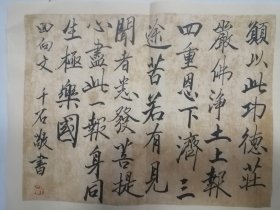 願以此功德莊
嚴佛淨土上報
四重恩下濟三
途苦若有見
聞者悉發菩提
心盡此一報身同
生極樂國
回向文 千石敬書